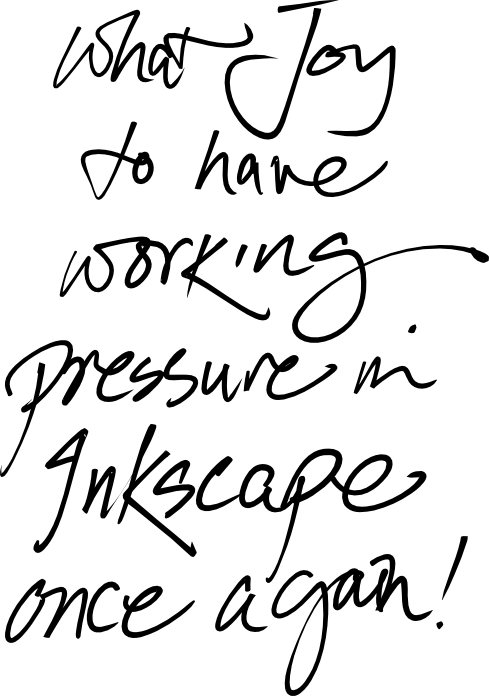 what Joy
to have
working
pressure in
Inkscape
once again!